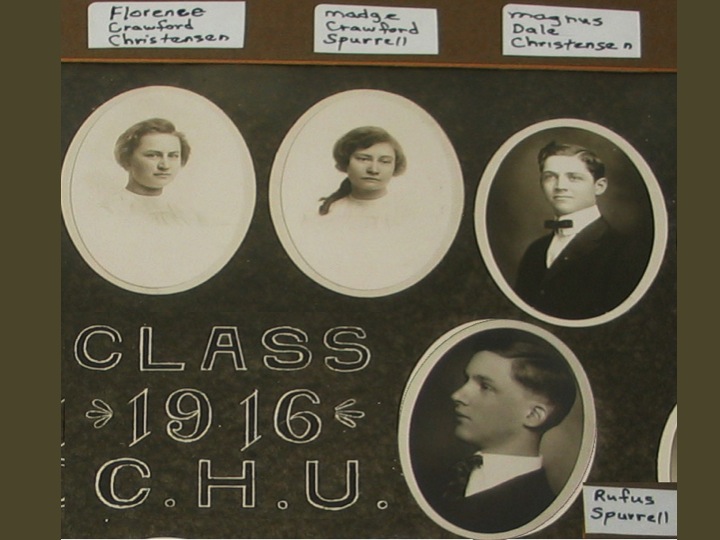 Florence
Crawford
Christensen
madge
Crawford
Spurrell
magnus
Dale
Christensen
CLASS
1916
C.H.U.
Rufus
Spurrell